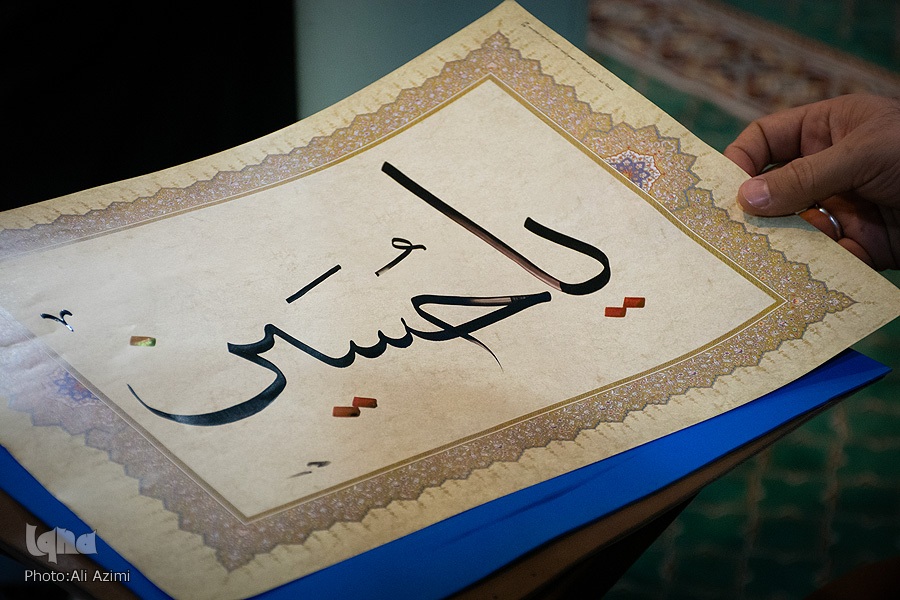 يا حُسَين
Iqna
Photo:Ali Azimi